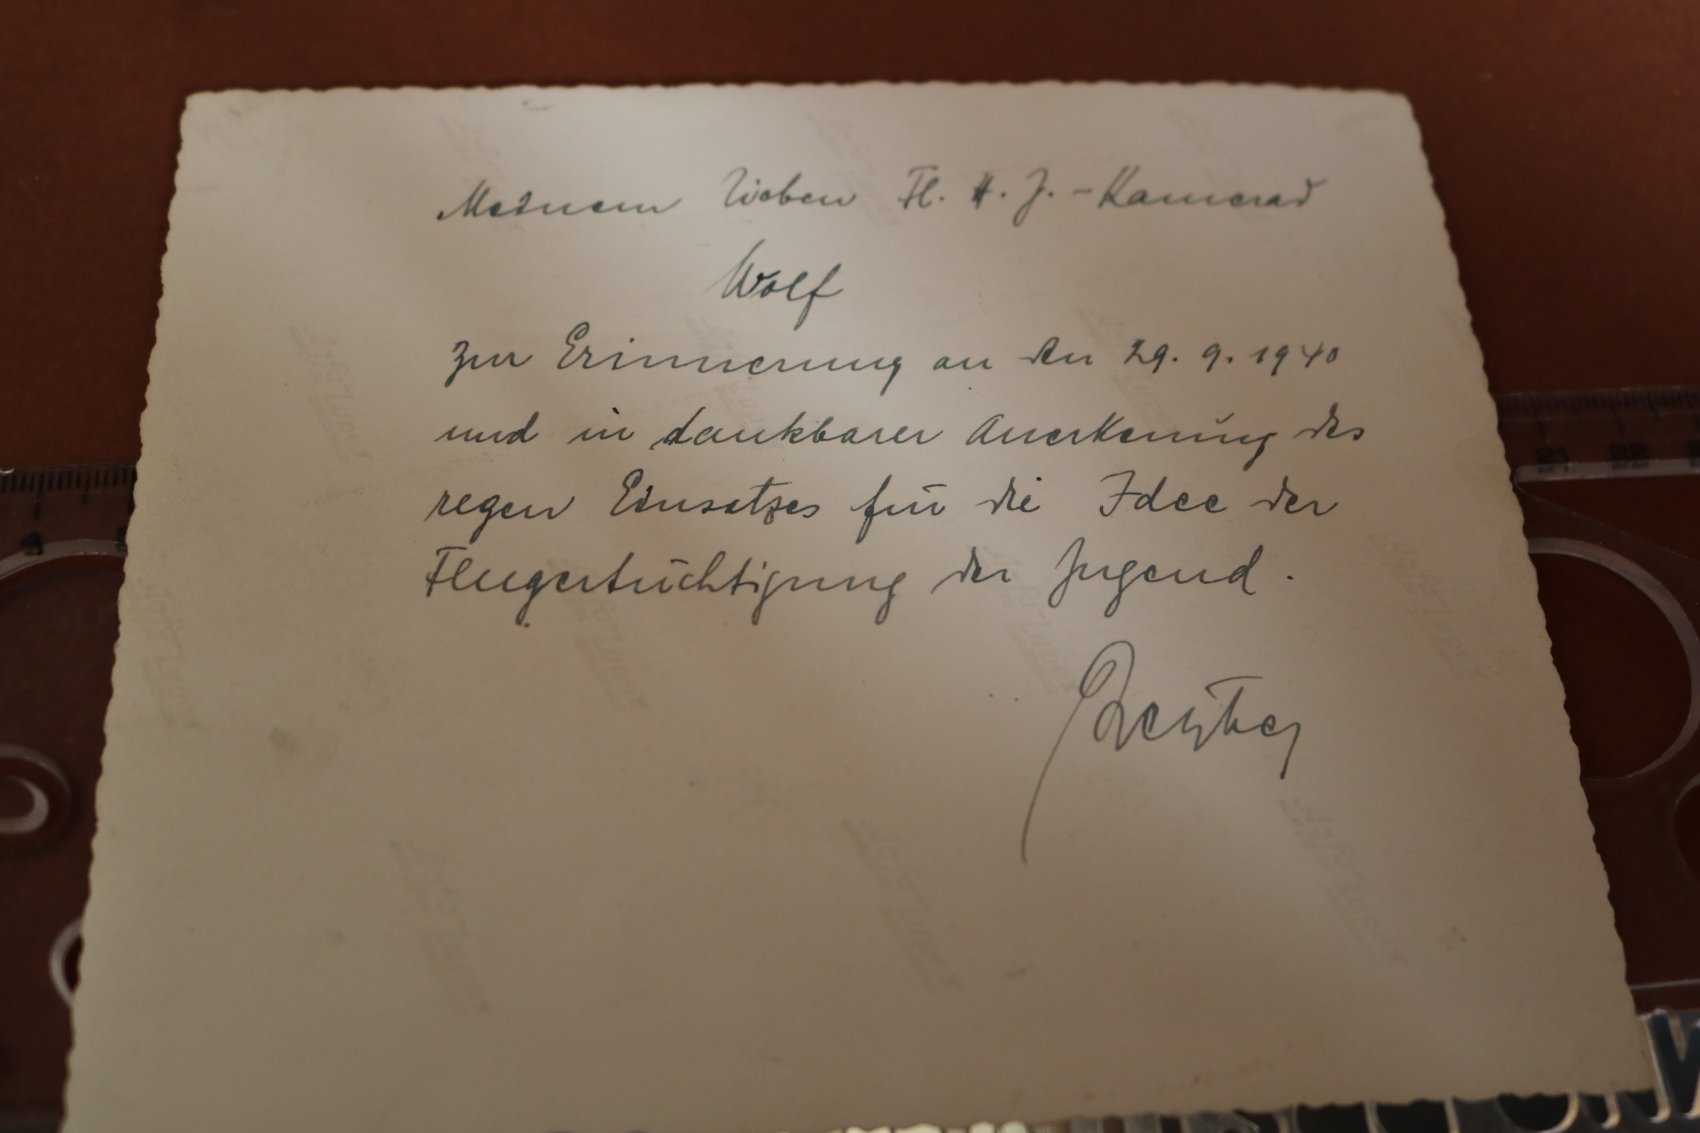 Meinem lieben Fl. H. J. - Kamerad
Wolf
zur Erinnerung an den 29. 9. 1940
und in dankbarer Anerkennung des
regen Einsatzes für die Idee der
Flugertüchtigung der Jugend.